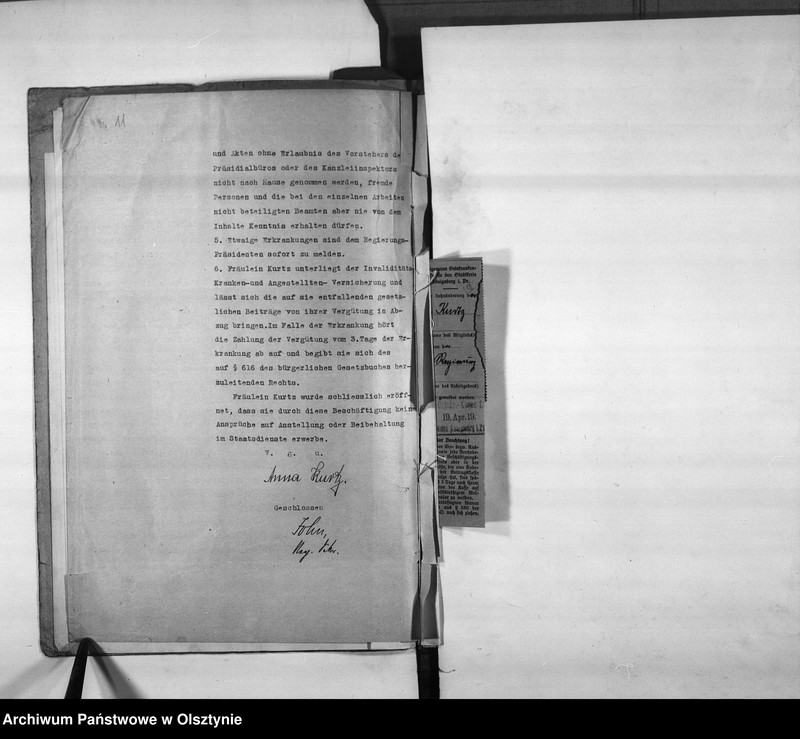 11
und Akten ohne Erlaubnis des Vorstehers de
Präsidialbüros oder des Kanzleiinspektors
nicht nach Hause genommen werden, fremde
Personen und die bei den einzelnen Arbeiten
nicht beteiligten Beamten aber nie von dem
Inhalte Kenntnis erhalten dürfen.
5. Etwaige Erkrankungen sind dem Regierungs-
Präsidenten sofort zu melden.
6. Fräulein Kurtz unterliegt der Invaliditäts
Kranken-und Angestellten- Versicherung und
lässt sich die auf sie entfallenden gesetz-
lichen Beiträge von ihrer Vergütung in Ab-
zug bringen.Im Falle der Erkrankung hört
die Zahlung der Vergütung vom 3.Tage der Er-
krankung ab auf und begibt sie sich des
auf § 616 des bürgerlichen Gesetzbuches her-
zuleitenden Rechts.
Fräulein Kurtz wurde schliesslich eröff-
net, dass sie durch diese Beschäftigung kein
Ansprüche auf Anstellung oder Beibehaltung
im Staatsdienste erwerbe.
V. g. u.
Anna Kurtz.
Geschlossen
Kurtz
Regierung
19. Apr. 19.
Archiwum Państwowe w Olsztynie